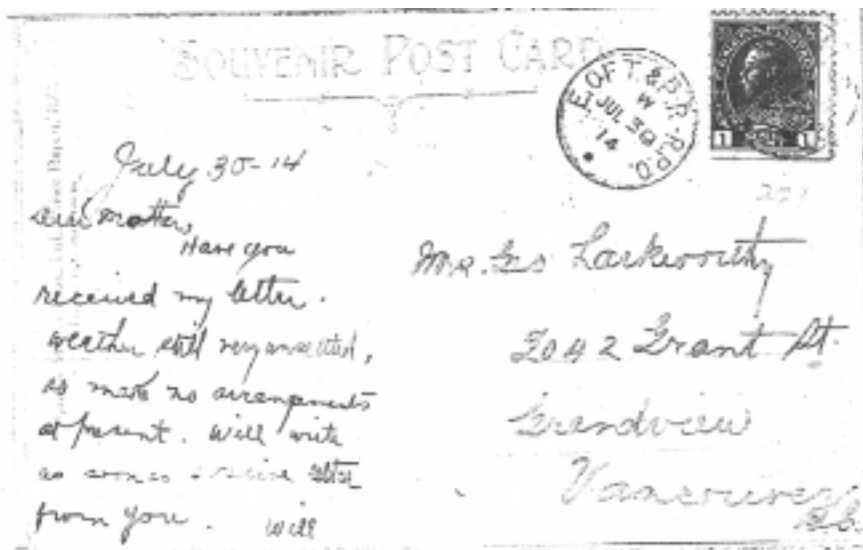 SOUVENIR POST CARD
E. OF T. & P.R. R.P.O.
W
JUL 30
14
1 1
July 30-14
Dear Mother,
Have you
received my letter.
Weather still very unsettled,
so make no arrangements
at present. Will write
as soon as I receive letter
from you. Will
Larkworthy
2042 Grant St.
Grandview
Vancouver
B.C.